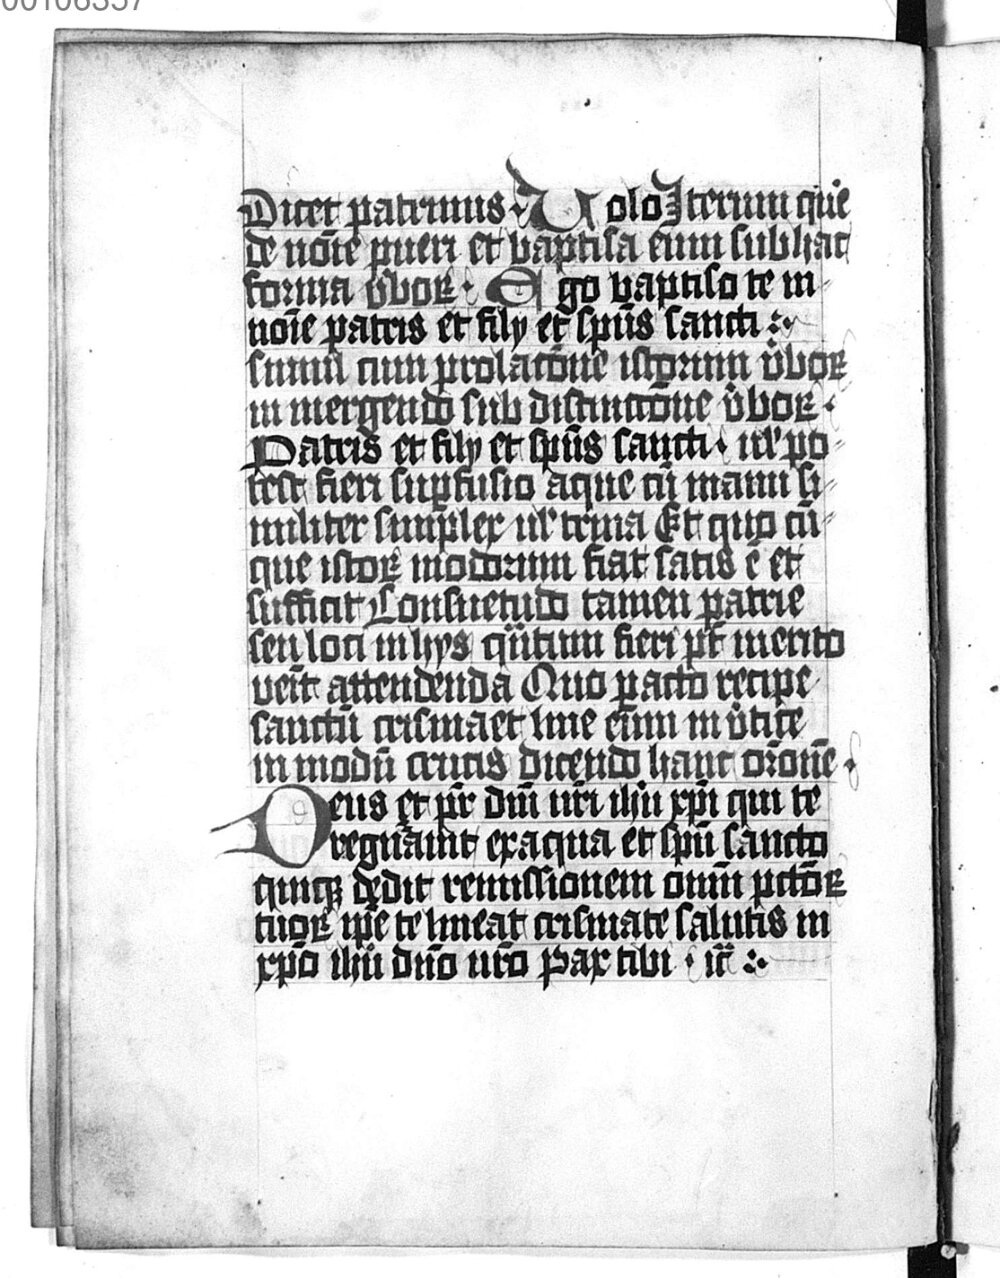 00106357
Dicet patrinus · Volo Iterum que͛
de no͞ie pueri et baptisa eum sub hac
forma v̓boꝝ · Ego baptiso te in
no͞ie patris et filÿ et sp͞us sancti :·
simul cum prolac͞one istorum v̓boꝝ
in mergendo sub distincc͞one v̓boꝝ ·
Patris et filÿ et sp͞us sancti · ul̓ po
test fieri sup̱fusio aque cū manu si
militer simplex ul̓ trina Et quo cū
que istoꝝ modorum fiat satis ē et
sufficit Consuetudo tamen patrie
seu loci in hÿs
fieri p̄t merito
ve͞it attendenda Quo pacto recipe
sanctū crisma et line eum in v̓tice
in modū crucis dicendo hanc or͞one͞ ·
Deus et pr͞ dn͞i nr͞i ihū xp͞i qui te
regn͞auit ex aqua et sp͞u sancto
quiqꝫ dedit remissionem om͞i pctōꝝ
tuoꝝ ip͞e te lineat crismate salutis in
xp͞o ihū dn͞o nr͞o Pax tibi ·